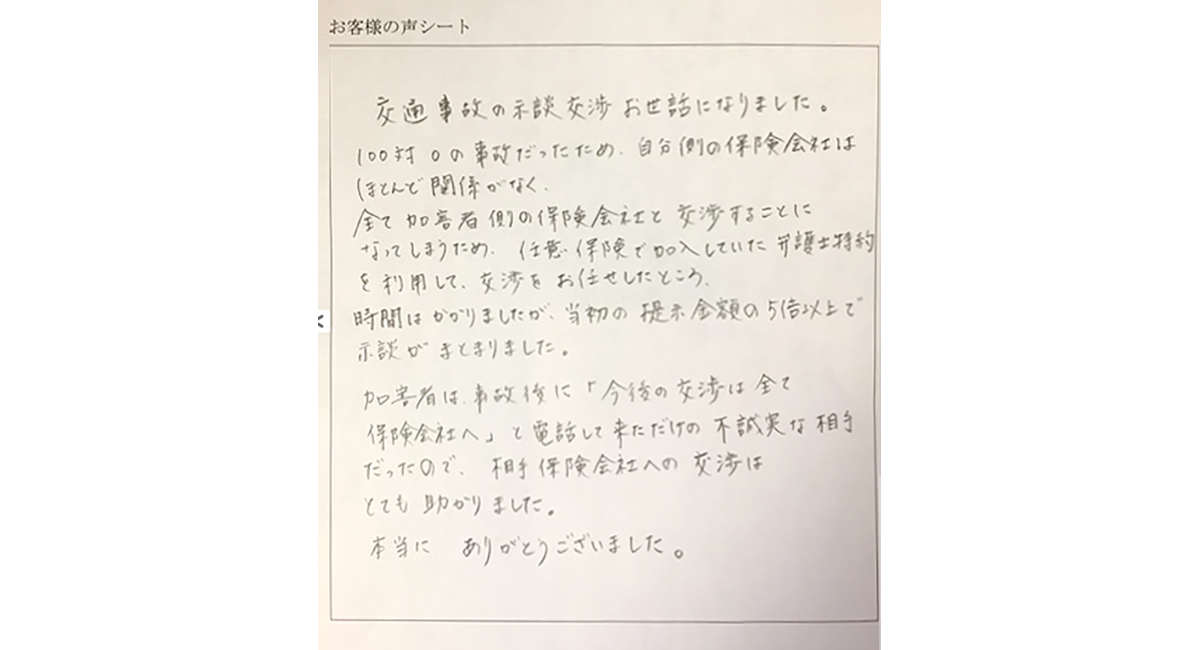 お客様の声シート
交通事故の示談交渉お世話になりました。
100対0の事故だったため、自分側の保険会社は
ほとんど関係がなく、
全て加害者側の保険会社と交渉することに
なってしまうため、任意保険で加入していた弁護士特約
を利用して、交渉をお任せしたところ、
時間はかかりましたが、当初の提示金額の5倍以上で
示談がまとまりました。
加害者は、事故後に「今後の交渉は全て
保険会社へ」と電話して来ただけの不誠実な相手
だったので、相手保険会社への交渉は
とても助かりました。
本当に ありがとうございました。